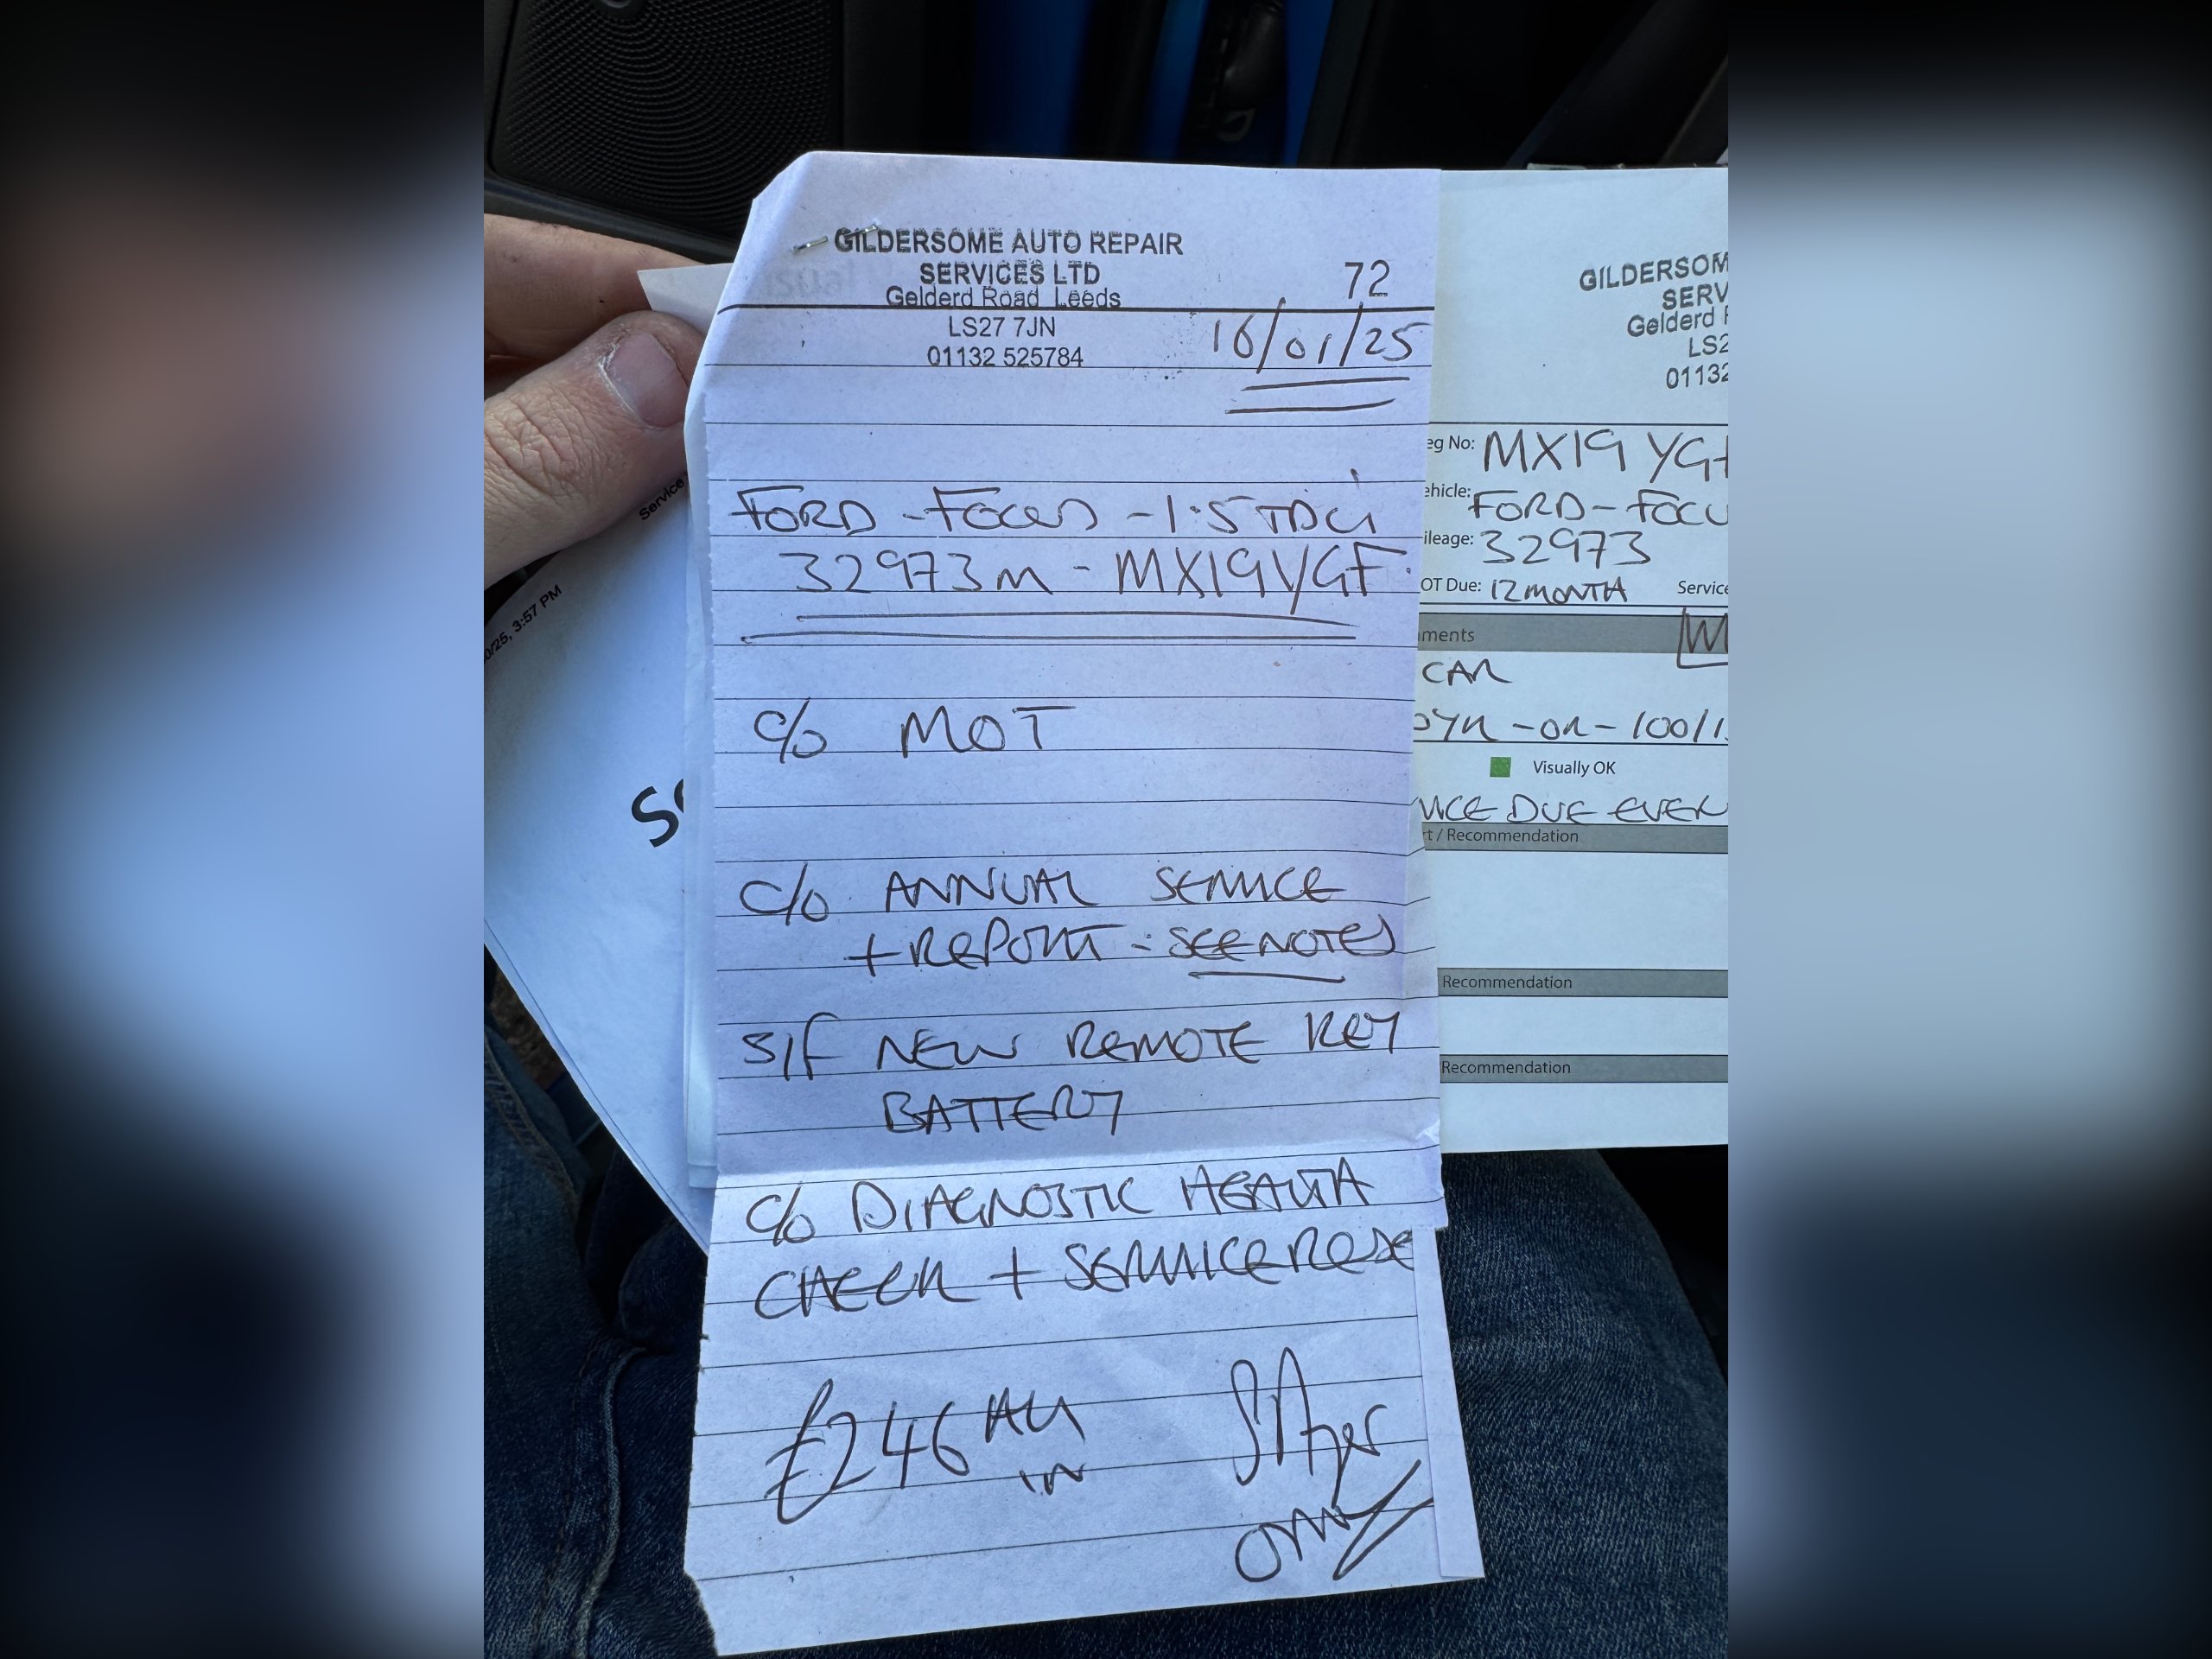 GILDERSOME AUTO REPAIR
SERVICES LTD
Gelderd Road Leeds
LS27 7JN
01132 525784
72
16/01/25
FORD - FOCUS - 1.5 TDCi
32973m - MX19YGF
c/o MOT
c/o ANNUAL SERVICE
+ REPORT - SEE NOTES
S/F NEW REMOTE KEY
BATTERY
c/o DIAGNOSTIC HEALTH
CHECK + SERVICE RESE
£246 ALL
IN
GILDERSOM
SERV
Gelderd
LS2
01132
eg No: MX19 YG
ehicle: FORD - FOCU
ileage: 32973
OT Due: 12 MONTH Service
ments
CAR
YR - OR - 100/1
Visually OK
VICE DUE EVER
rt / Recommendation
Recommendation
Recommendation
Service
0/25, 3:57 PM